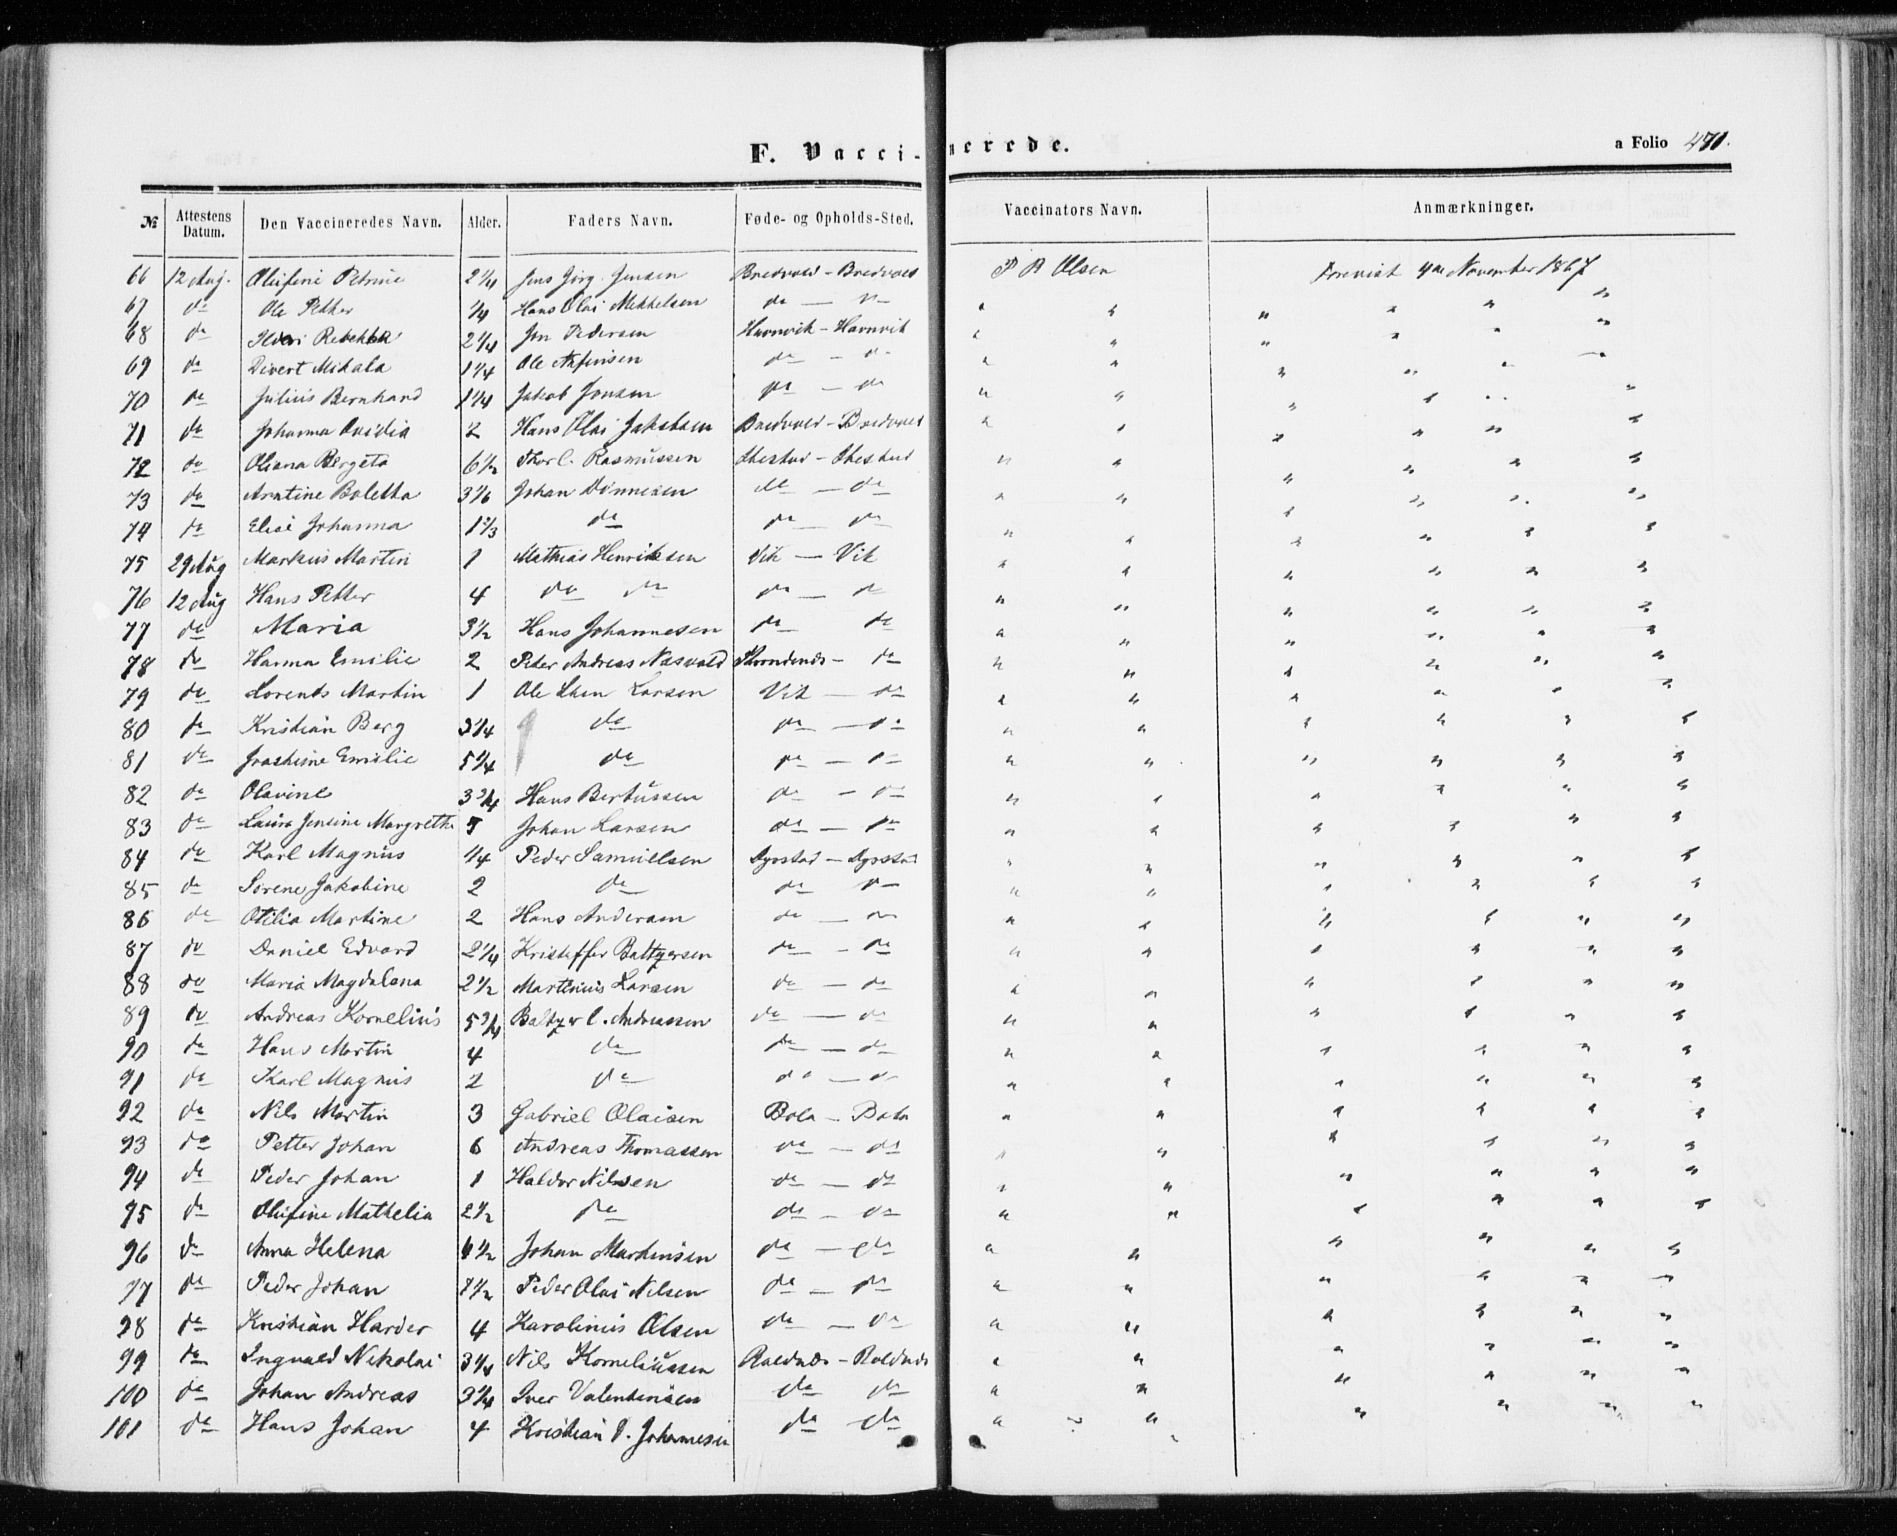 F. Vaccinerede.
a Folio 471.
№ Attestens Datum. Den Vaccineredes Navn. Alder. Faders Navn. Føde- og Opholds-Sted. Vaccinators Navn. Anmærkninger.
66 12 Aug. Olufine Petrine 2 1/4 Jens Jørg. Jensen Bredvold - Bredvold P B Olsen Forevist 4de November 1867
67 do Ole Petter 1/4 Hans Olai Mekkelsen do — " " " " " " "
68 do Rebekka 2 1/4 Jon Pedersen Havnvik - Havnvik " " " " " "
69 do Divert Mikala 1 1/4 Ole Arfinsen do - do " " " " " "
70 do Julius Bernhard 1 1/4 Jakob Jonsen do - do " " " " " "
71 do Johanna Ovidia 2 Hans Olai Jakobsen Bredvold - Bredvold " " " " " "
72 do Oliana Bergeta 6 1/2 Thorl. Rasmussen " " " " " "
73 do Arntine Boletta 3 1/6 Johan Dønnesen do - do " " " " " "
74 do Elise Johanna 1 2/3 do do - do " " " " " "
75 29 Aug Markus Martin 1 Mathias Henriksen Vik - Vik " " " " " "
76 12 Aug Hans Petter 4 do do do - do " " " " " "
77 do Maria 3 1/2 Hans Johannesen do do " " " " " "
78 do Hanna Emilie 2 Peter Andreas Næsvold - do " " " " " "
79 do Lorents Martin 1 Ole Larsen Vik - do " " " " " "
80 do Kristian Berg 3 1/4 do do - do " " " " " "
81 do Emilie 5 1/4 do do - do " " " " " "
82 do Olavine 3 3/4 Hans Bertussen do - do " " " " " "
83 do Laura Jensine Margrethe 5 Johan Larsen do - do " " " " " "
84 do Karl Magnus 1/4 Peder Samuelsen Dyrstad - Dyrstad " " " " " "
85 do Sørene Jakobine 2 do do do " " " " " "
86 do Otilia Martine 2 Hans Andersen do - do " " " " " "
87 do Daniel Edvard 2 1/4 Kristoffer Baltzersen do - do " " " " " "
88 do Maria Magdalena 2 1/2 Martinus Larsen do - do " " " " " "
89 do Andreas Kornelius 5 3/4 Baltzer C. Andreassen do - do " " " " " "
90 do Hans Martin 4 do do - do " " " " " "
91 do Karl Magnus 2 do do - do " " " " " "
92 do Nils Martin 3 Gabriel Olaisen Bola - Bola " " " " " "
93 do Petter Johan 6 Andreas Thomassen do - do " " " " " "
94 do Peder Johan 1 Haldor Nilsen do - do " " " " " "
95 do Olufine Mathelia 2 1/2 do do - do " " " " " "
96 do Anna Helena 1/2 Johan Martinsen do - do " " " " " "
97 do Peder Johan 1 1/2 Peder Olai Nilsen do - do " " " " " "
98 do Kristian Harder 4 Karolinius Olsen do - do " " " " " "
99 do Ingvald Nikolai 3 1/4 Nils Korneliussen Roldnæs - Roldnæs " " " " " "
100 do Johan Andreas 3 1/4 Iver Valentinsen do do " " " " " "
101 do Hans Johan 4 Kristian P. Johannesen do do " " " " " "